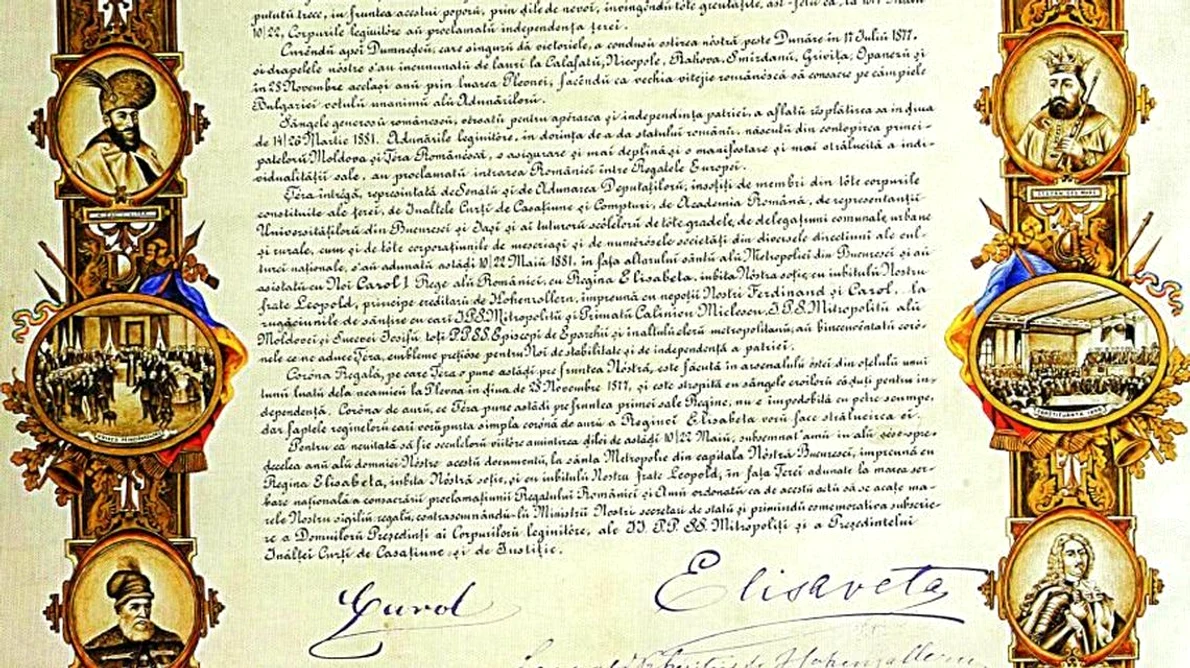 putută trece, în fruntea acestui poporă, prin dile de nevoi, învingêndŭ tóte greutățile, ast-felŭ că, la 1877 Maiŭ
10/22, Corpurile legiuitóre aŭ proclamatŭ independența țerei.
Curêndŭ apoi Dumnedeŭ, care singurŭ dă victoriele, a condusŭ ostirea nóstră peste Dunăre în 17 Iuliŭ 1877.
și drapelele nóstre s'aŭ încununatŭ de lauri la Calafatŭ, Nicopole, Rahova, Smîrdanŭ, Grivița, Opanezŭ și
in 28 Novembre același anŭ prin luarea Plevnei, făcêndŭ ca vechia vitejie românéscă să consacre pe câmpiele
Bulgariei votulŭ unanimŭ alŭ Adunărilorŭ.
Sângele generosŭ românescŭ, vĕrsatŭ pentru apĕrarea și independința patriei, a aflatŭ rĕsplătirea sa în diua
de 14/26 Martie 1881. Adunările legiuitóre, în dorința de a da statului românŭ, născutŭ din contopirea princi-
patelorŭ Moldova și Țéra Românéscă, o asigurare și mai deplină și o manifestare și mai strălucită a indi-
vidualității sale, aŭ proclamatŭ intrarea României între Regatele Europei.
Țéra întrégă, represintată de Senatŭ și de Adunarea Deputațilorŭ, însoțiți de membri din tóte corpurile
constituite ale țerei, de Inaltele Curți de Casațiune și Compturi, de Academia Română, de representanții
Universitățilorŭ din Bucuresci și Iași și ai tuturorŭ scólelorŭ de tóte gradele, de delegațiuni comunale, urbane
și rurale, cum și de tóte corporațiunile de meseriași și de numĕrósele societăți din diversele direcțiuni ale cul-
turei naționale, s'aŭ adunatŭ astădi 10/22 Maiŭ 1881, în fața altarului sântŭ alŭ Metropoliei din Bucuresci și aŭ
asistatŭ cu Noi Carol I Rege alŭ României, cu Regina Elisabeta, iubita Nóstră soție, cu iubitulŭ Nostru
frate Leopold, principe ereditarŭ de Hohenzollern, împreună cu nepoții Nostri Ferdinand și Carol, la
rugăciunile de sânțire cu cari I.P.S. Mitropolitŭ și Primatŭ Calinicŭ Miclescu, I.P.S. Mitropolitŭ alŭ
Moldovei și Sucevei Iosifŭ, toți P.P.S.S. Episcopi de Eparchii și înaltulŭ clerŭ metropolitanŭ, aŭ bincuvêntatŭ coró-
nele ce ne aduce Țéra, embleme prețióse pentru Noi de stabilitate și de independență a patriei.
Coróna Regală, pe care Țéra o pune astădi pre fruntea Nóstră, este făcută în arsenalulŭ óstei din oțelulŭ unui
tunŭ luatŭ dela neamici la Plevna în diua de 28 Novembre 1877, și este stropită cu sângele eroilorŭ căduți pentru in-
dependență. Coróna de aurŭ, ce Țéra pune astădi pre fruntea primei sale Regine, nu e împodobită cu petre scumpe,
dar faptele reginelorŭ cari vorŭ purta simpla coronă de aurŭ a Reginei Elisabeta vorŭ face strălucirea ei.
Pentru ca neuitată să fie seculilorŭ viitóre amintirea dilei de astădi 10/22 Maiŭ, subsemnat'amŭ în alŭ șése-spre-
decelea anŭ alŭ domniei Nóstre acestŭ documentŭ, la sânta Metropolie din capitala Nóstră Bucuresci, împreună cu
Regina Elisabeta, iubita Nóstră soție, și cu iubitulŭ Nostru frate Leopold, în fața Țerei adunate la marea ser-
bare națională a consacrării proclamațiunii Regatului României și Amŭ ordonatŭ ca de acestŭ actŭ să se acațe ma-
rele Nostru sigiliŭ regalŭ, contrasemnându-lŭ Miniștrii Nostri secretari de statŭ și primindŭ comemorativa subscrie-
re a Domnilorŭ Președinți ai Corpurilorŭ legiuitóre, ale II. PP. SS. Mitropoliți și a Președintelui
Inaltei Curți de Casațiune și de Justiție.
Carol
Elisaveta
Hohenzollern
ȘTEFAN CEL MARE
CONSTITUANTA 1866